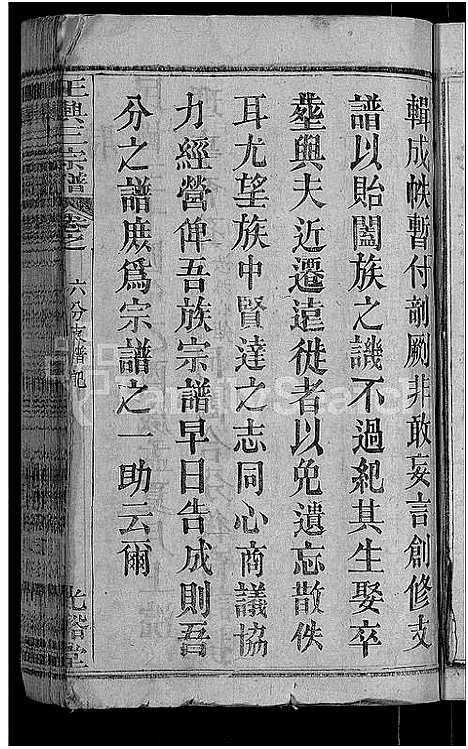 輯成帙暫付剞劂非敢妄言創修支
譜以貽闔族之譏不過紀其生娶卒
塟與夫近遷遠徙者以免遺忘散佚
耳尤望族中賢達之志同心商議協
力經營俾吾族宗譜早日告成則吾
分之譜庶爲宗譜之一助云爾
王興三宗譜
卷之
六分支譜記
光裕堂
FamilySearch